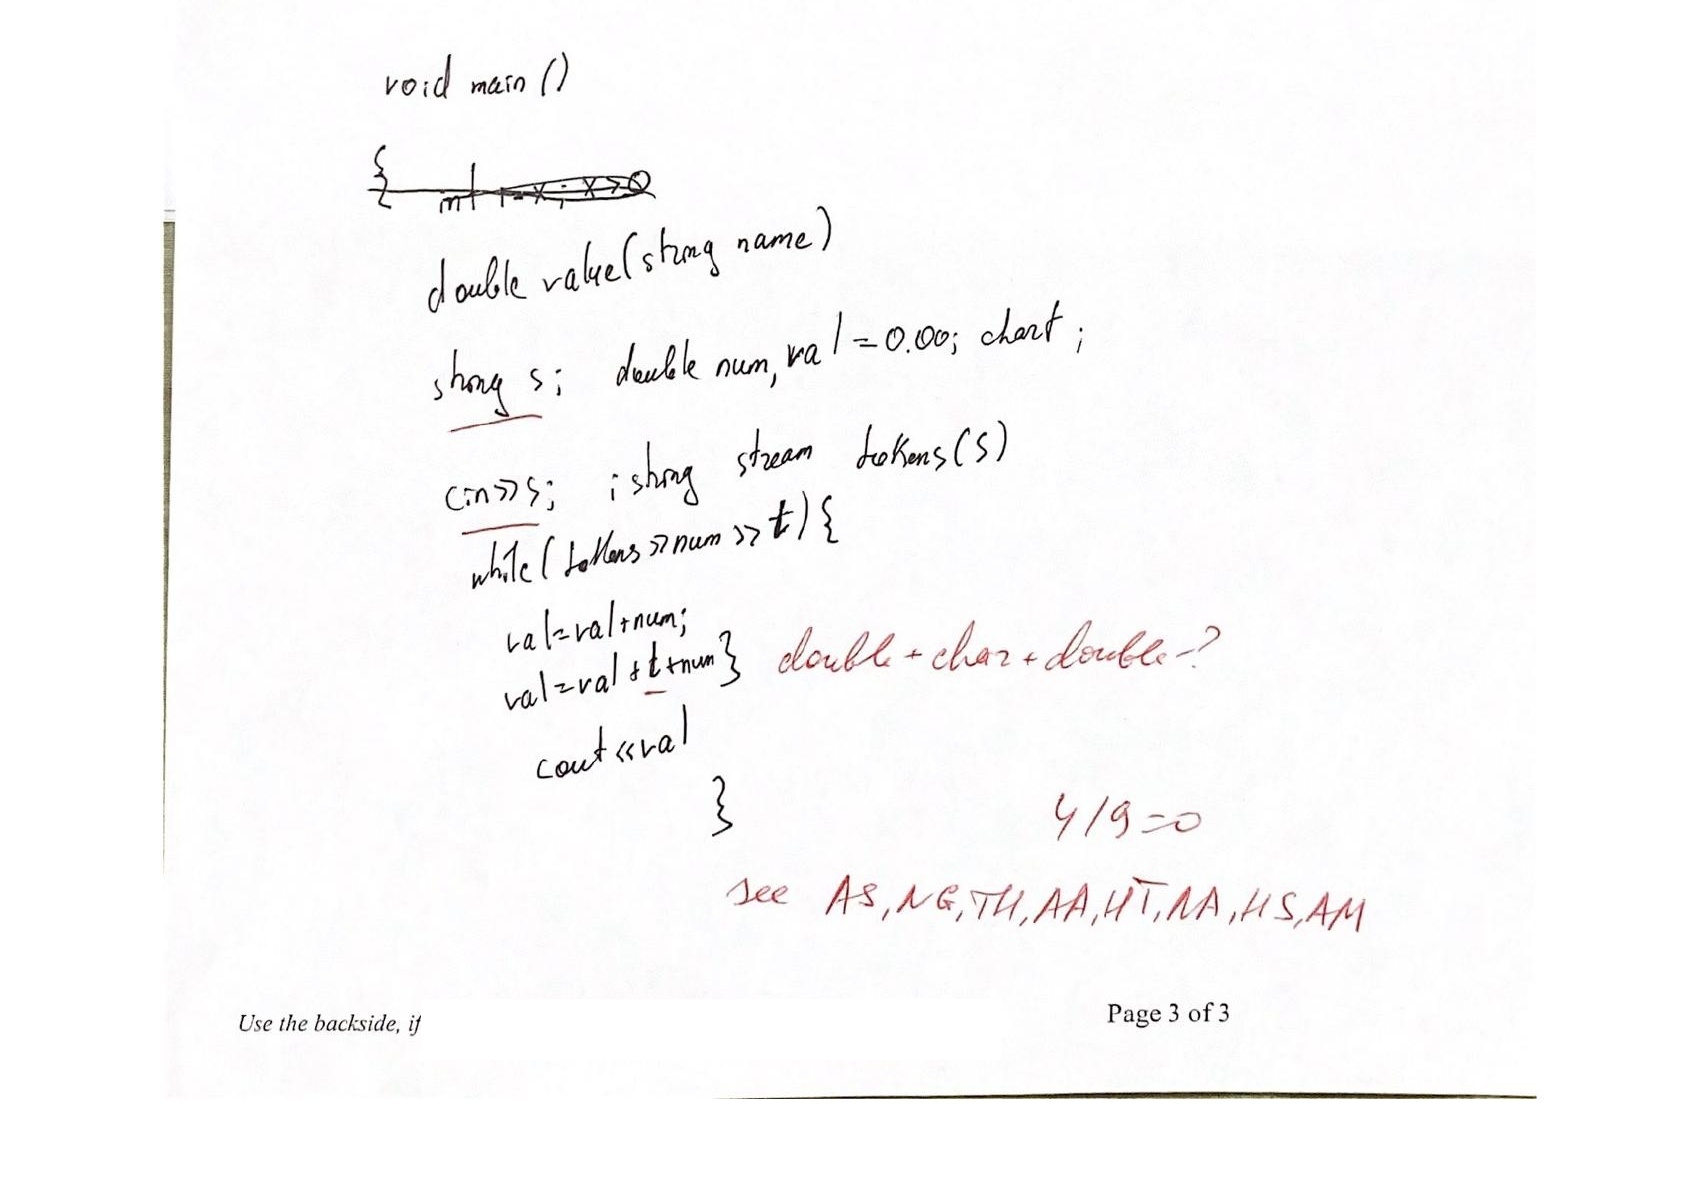 void main ()
{
double value(string name)
string s; double num, val = 0.00; char t ;
cin>>s; istring stream tokens(s)
while(tokens>>num>>t){
val=val+num;
val=val+t+num} double+char+double-?
cout<<val
}
4/9=0
see AS,NG,TH,AA,HT,NA,HS,AM
Use the backside, if
Page 3 of 3